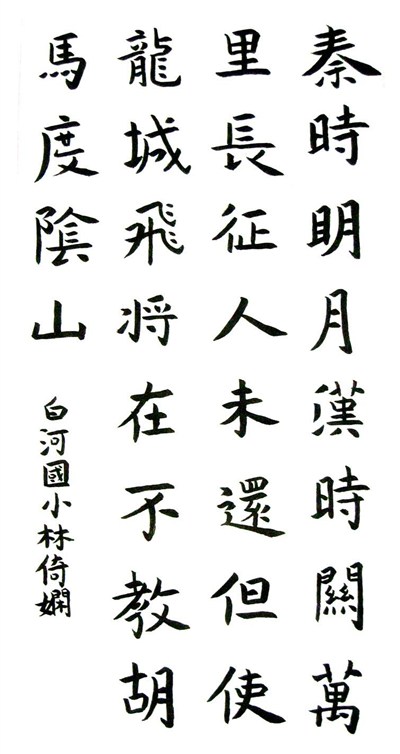 秦時明月漢時關萬
里長征人未還但使
龍城飛将在不教胡
馬度陰山
白河國小林倚嫻